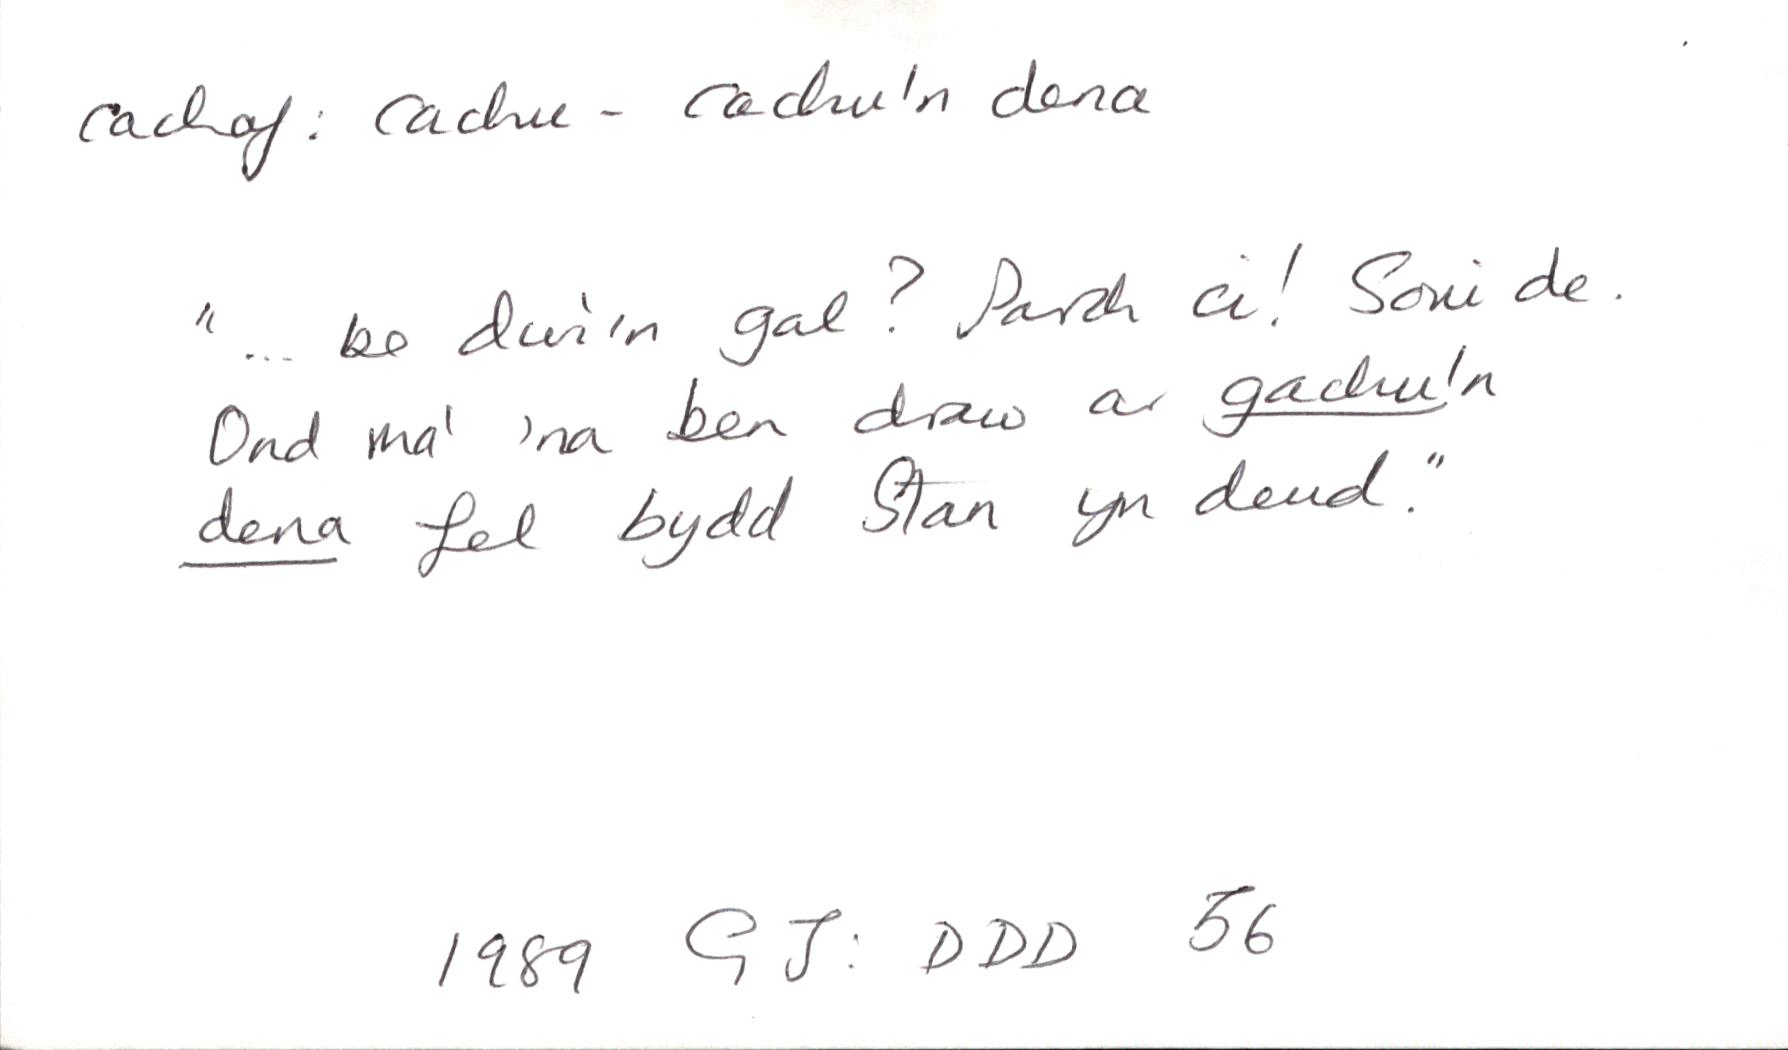 cachaf: cachu - cachu'n dena
"... be dwi'n gal? Parch ci! Soni de.
Ond ma' 'na ben draw ar gachu'n
dena fel bydd Stan yn deud."
1989 GJ: DDD 56